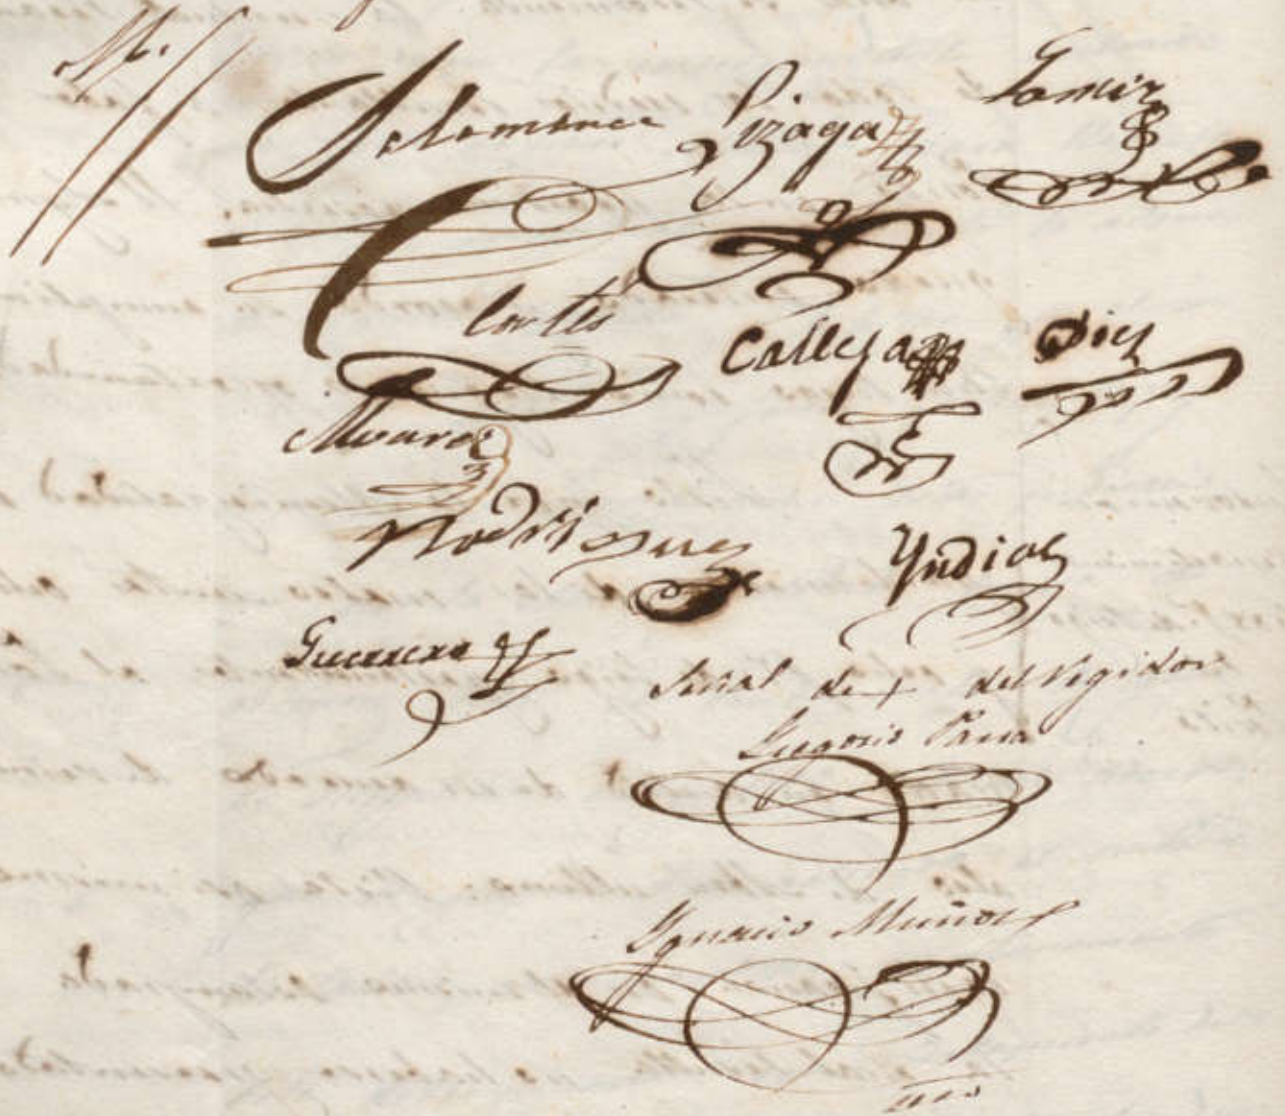 Salamanca Lizaga Gomez
Cortes Calleja Diez
Alvarez
Rodriguez Yndias
Guerrero
Señal de + del Regidor
Gregorio Parra
Ignacio Muñoz